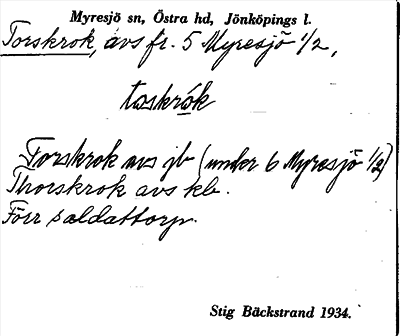 Myresjö sn, Östra hd, Jönköpings l.
Torskrok, avs fr. 5 Myresjö 1/2,
toskrók
Torskrok avs jb (under 6 Myresjö 1/2)
Thorskrok avs kb.
Förr soldattorp.
Stig Bäckstrand 1934.